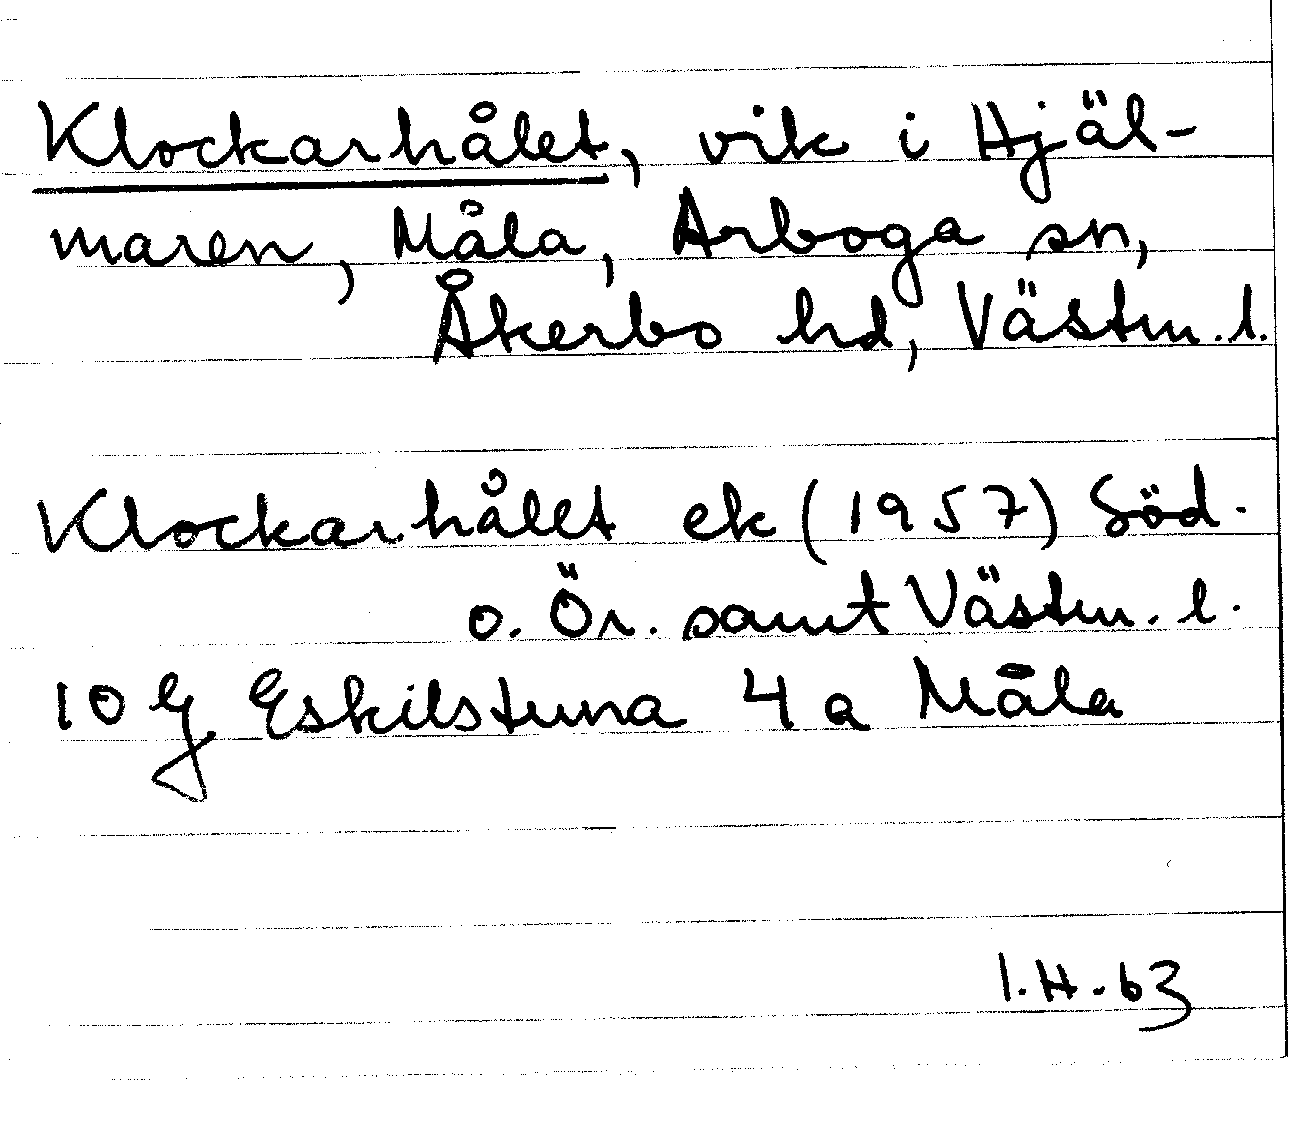 Klockarhålet, vik i Hjäl-
maren, Måla, Arboga sn,
Åkerbo hd, Västm. l.
Klockarhålet ek (1957) Söd.
o. Ör. samt Västm. l.
10 g Eskilstuna 4 a Måla
I.H.63